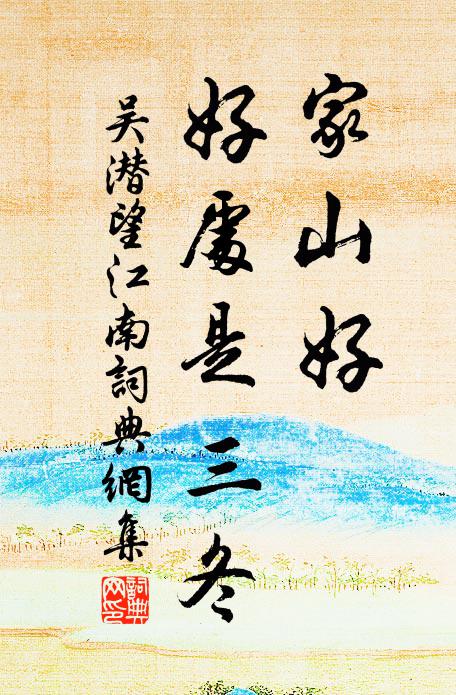 家山好
好處是三冬
吴潜望江南詞典網集
詞典网印